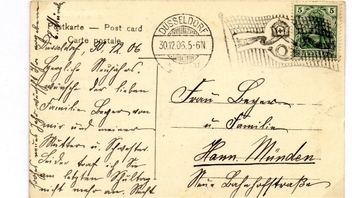 Postkarte — Post card
Carte postale
DÜSSELDORF
30.12.06. 5-6N
5
5
Düsseldorf 30.12.06
Herzliche Neujahrs-
wünsche der lieben
Familie Beyer von
mir und meiner
Mutter u. Schwester
Leider traf ich Sie
am letzten
nicht mehr am
Frau Beyer
u. Familie
Hann. Münden
Neue Bahnhofstraße